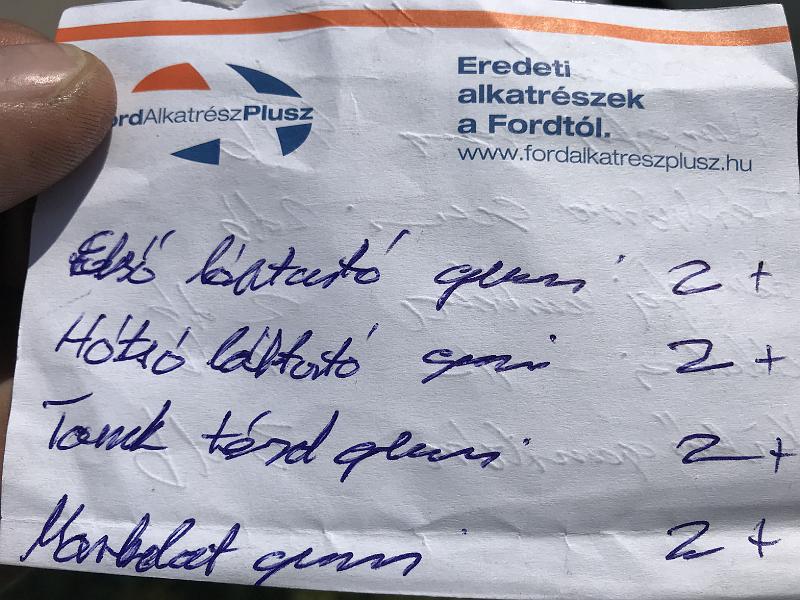 ordAlkatrészPlusz
Eredeti
alkatrészek
a Fordtól.
www.fordalkatreszplusz.hu
Első lábtartó gumi 2 +
Hátsó lábtartó gumi 2 +
Tank térd gumi 2 +
Markolat gumi 2 +